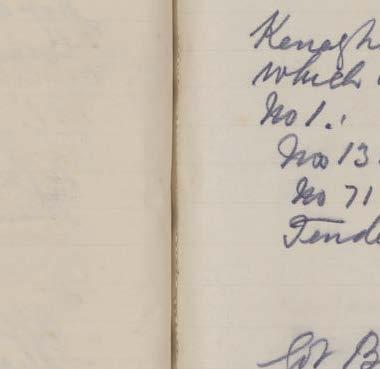 Kenagh
which
No 1.
Nos 13
No 71
Tende